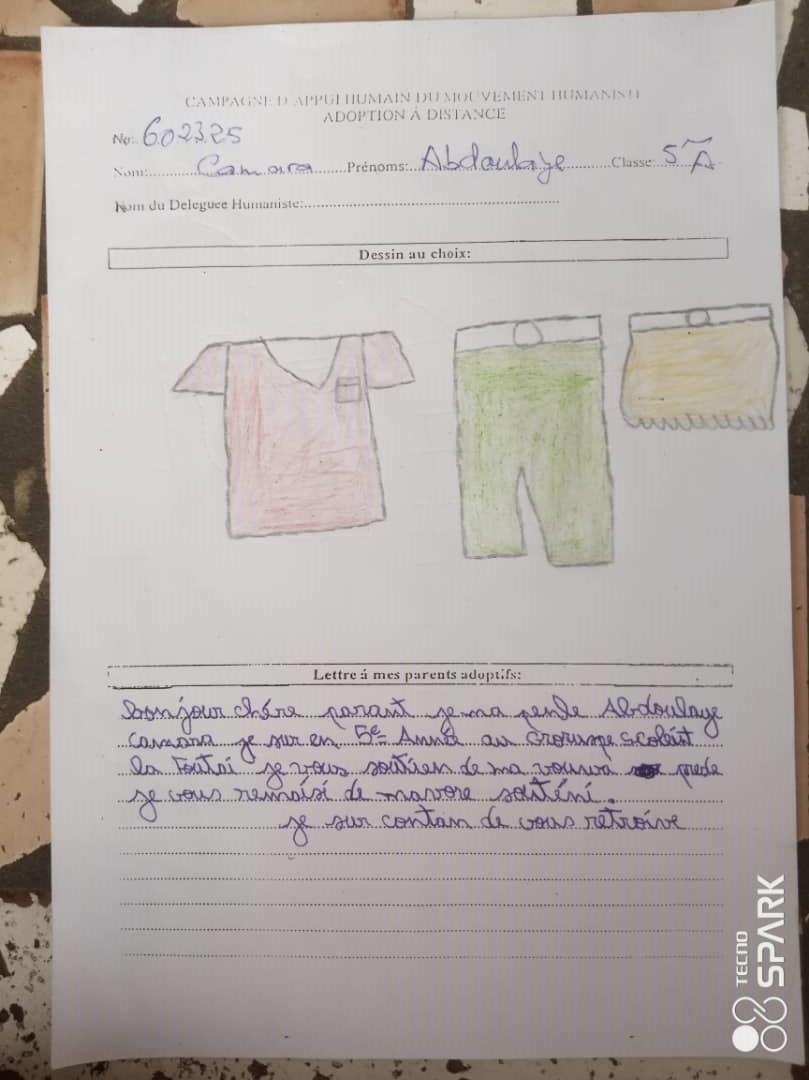 CAMPAGNE D'APPUI HUMAIN DU MOUVEMENT HUMANISTE
ADOPTION À DISTANCE
No: 602325
Nom: Camara Prénoms: Abdoulaye Classe: 5 A
Nom du Deleguee Humaniste:
Dessin au choix:
Lettre á mes parents adoptifs:
Bonjour chére parant je ma penle Abdoulaye
camara je sur en 5e Année au Croruspe scoleist
la Foutai je vous soutien de ma vouwa prede
je vous remaisi de mavore souténi.
je sur contan de vous retroive
TECNO
SPARK